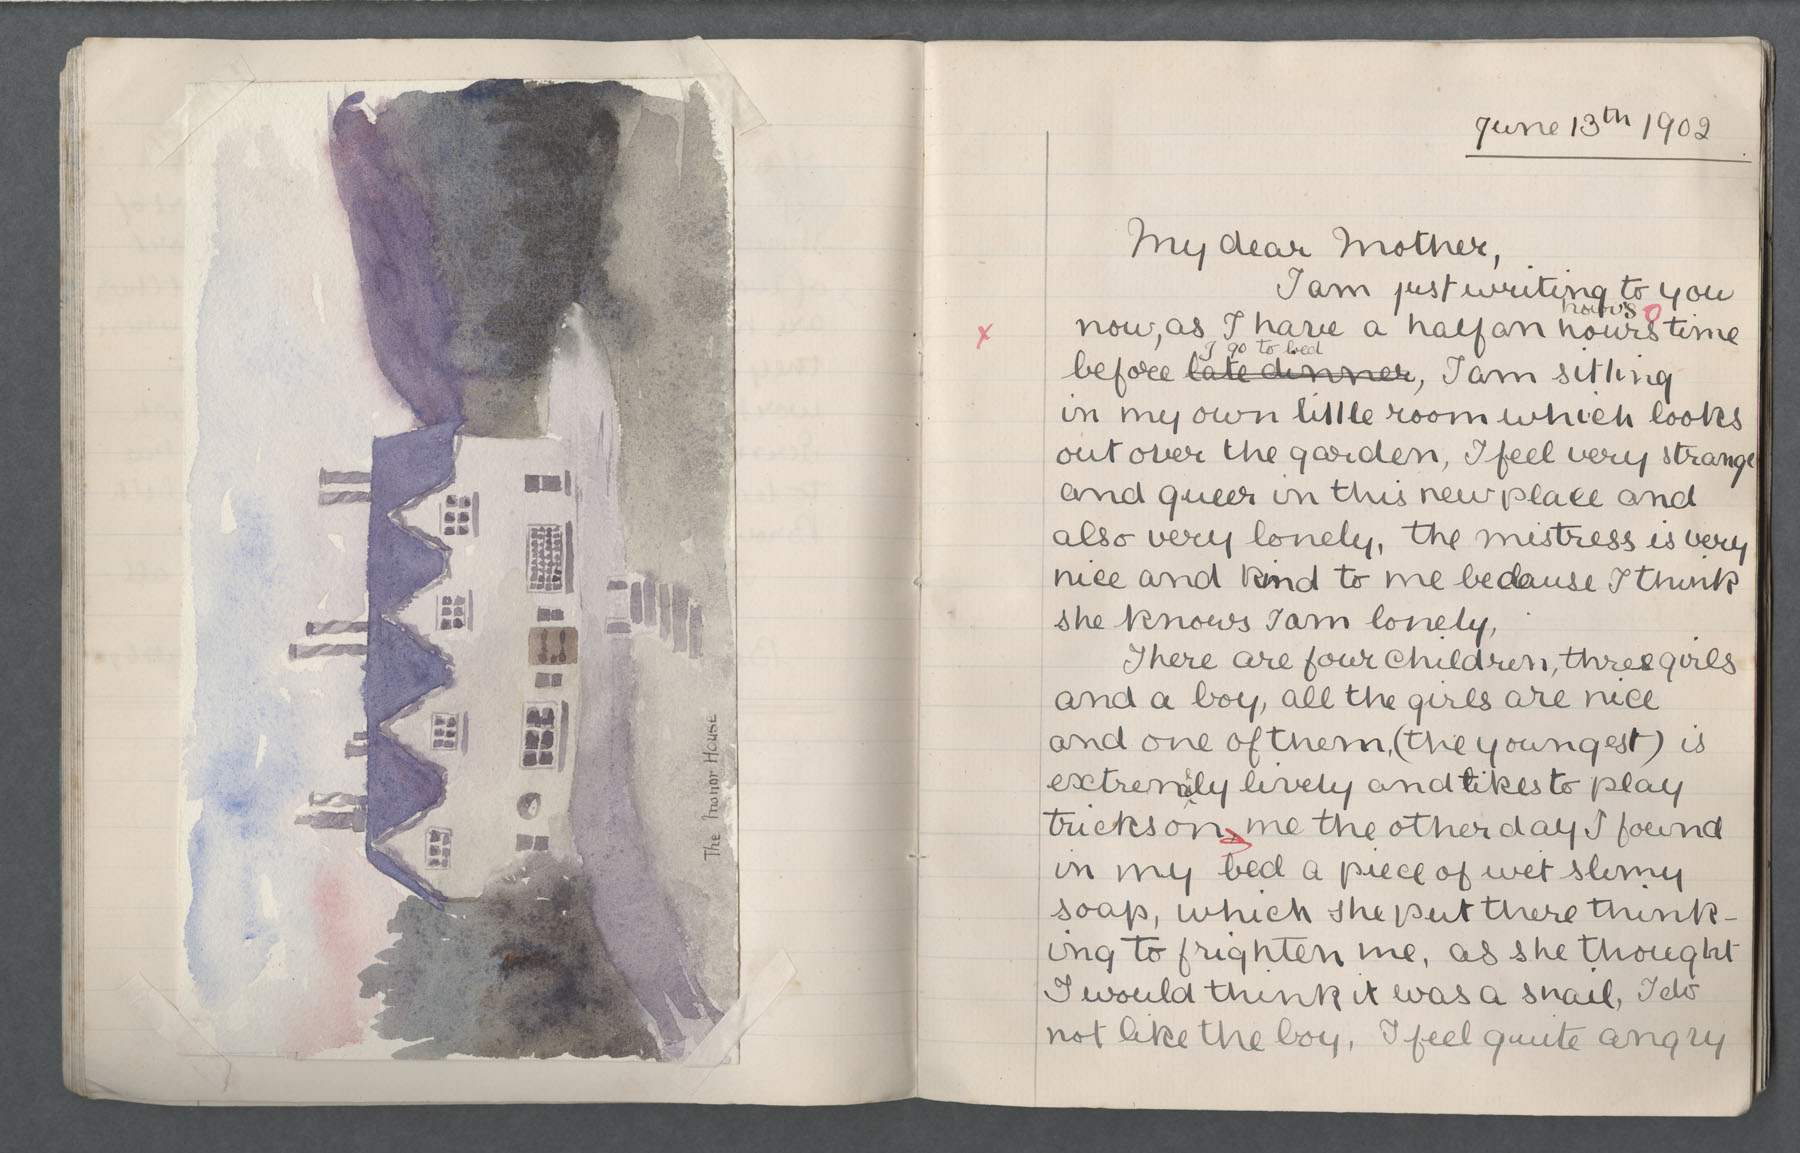 The Manor House
June 13th 1902
My dear Mother,
I am just writing to you
hour's
now, as I have a half an hours time
I go to bed
before late dinner, I am sitting
in my own little room which looks
out over the garden, I feel very strange
and queer in this new place and
also very lonely, the mistress is very
nice and kind to me because I think
she knows I am lonely,
There are four children, three girls
and a boy, all the girls are nice
and one of them, (the youngest) is
extremely lively and likes to play
tricks on me the other day I found
in my bed a piece of wet slimy
soap, which she put there think-
ing to frighten me, as she thought
I would think it was a snail, I do
not like the boy, I feel quite angry